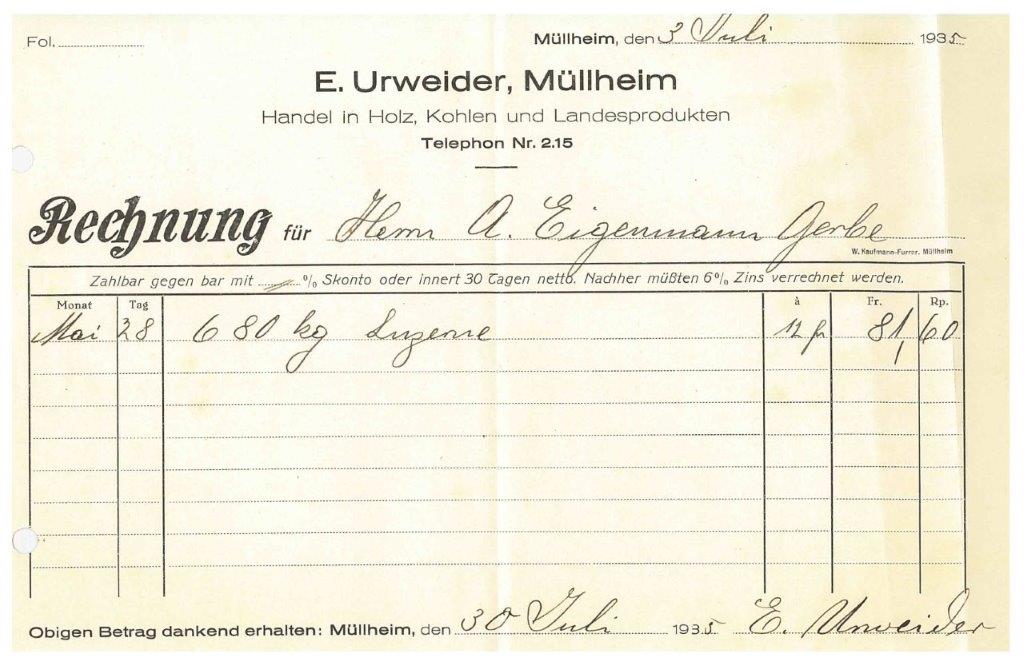 Fol.
Müllheim, den 3 Juli 1935
E. Urweider, Müllheim
Handel in Holz, Kohlen und Landesprodukten
Telephon Nr. 2.15
Rechnung für Herrn A. Eigenmann Gerbe
W. Kaufmann-Furrer, Müllheim
Zahlbar gegen bar mit % Skonto oder innert 30 Tagen netto. Nachher müßten 6% Zins verrechnet werden.
Monat Tag à Fr. Rp.
Mai 28 680 kg Luzerne 12 fr 81, 60
Obigen Betrag dankend erhalten: Müllheim, den 30 Juli 1935 E. Urweider